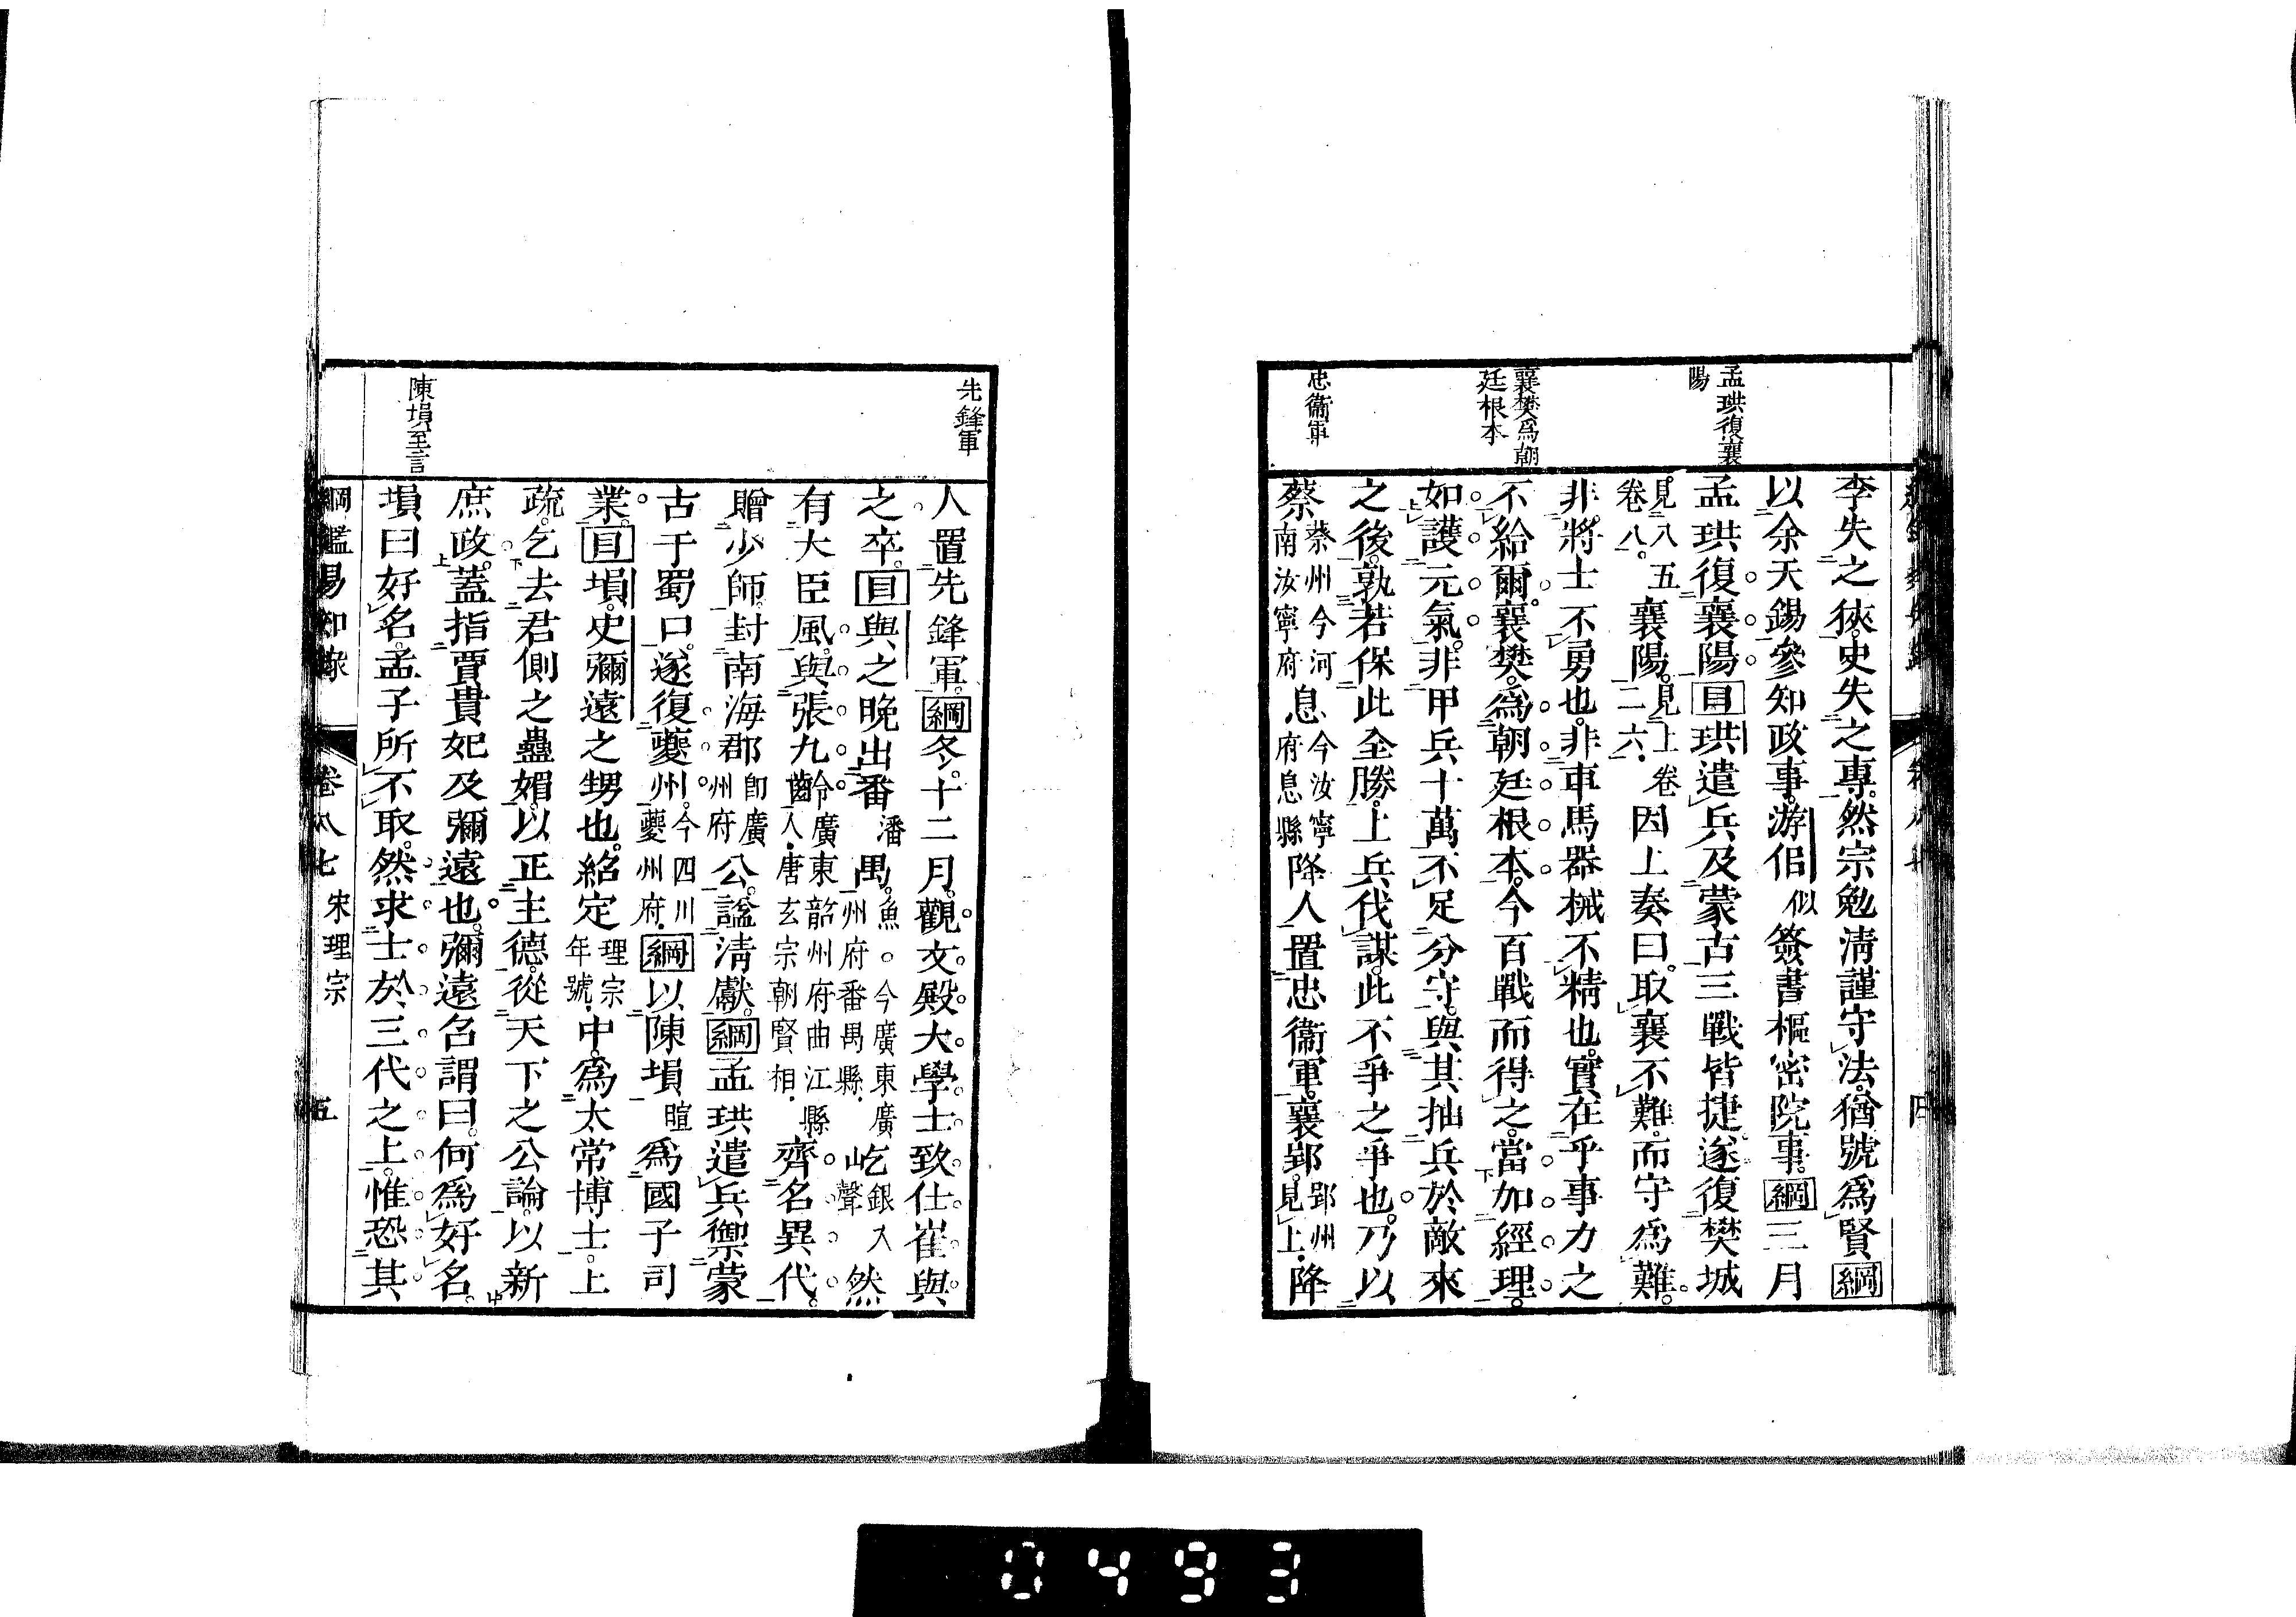 孟珙復襄
陽
襄樊爲朝
廷根本
忠衞軍
李失之狹。史失之專。然宗勉淸謹守法。猶號爲賢綱
以余天錫參知政事。游侣似簽書樞密院事。綱三月
孟珙復襄陽目珙遣兵及蒙古三戰皆捷遂復樊城
見八五卷八。襄陽。見上卷二六。因上奏曰。取襄不難。而守爲難。
非將士不勇也。非車馬器械不精也。實在乎事力之
不給爾。襄樊爲朝廷根本。今百戰而得之。當加經理。
如護元氣。非甲兵十萬不足分守。與其抽兵於敵來
之後。孰若保此全勝。上兵伐謀。此不爭之爭也。乃以
蔡蔡州今河南汝寧府息今汝寧府息縣降人置忠衞軍。襄郢郢州見上。降
先鋒軍
陳塤至言
人置先鋒軍。綱冬十二月。觀文殿大學士致仕崔與
之卒。目與之晩出番潘禺。魚。今廣東廣州府番禺縣。屹銀入聲然
有大臣風。與張九齡廣東韶州府曲江縣人。唐玄宗朝賢相。齊名異代。
贈少師。封南海郡卽廣州府公。謚淸獻。綱孟珙遣兵禦蒙
古于蜀口。遂復夔州。今四川夔州府。綱以陳塤暄爲國子司
業。目塤。史彌遠之甥也。紹定理宗年號。中。爲太常博士。上
疏。乞去君側之蠱媚。以正主德。從天下之公論。以新
庶政。蓋指賈貴妃及彌遠也。彌遠召謂曰。何爲好名。
塤曰好名。孟子所不取。然求士於三代之上。惟恐其
綱鑑易知錄 卷八七 宋理宗 五